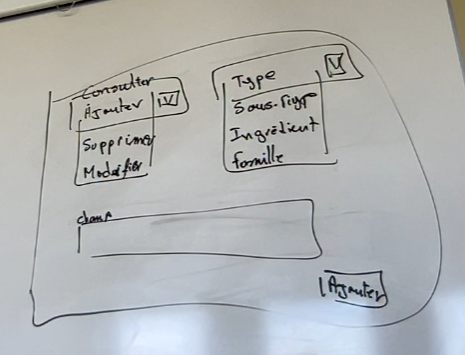 Consulter
Ajouter
Supprimer
Modifier
Type
Sous-Type
Ingrédient
famille
champ
Ajouter